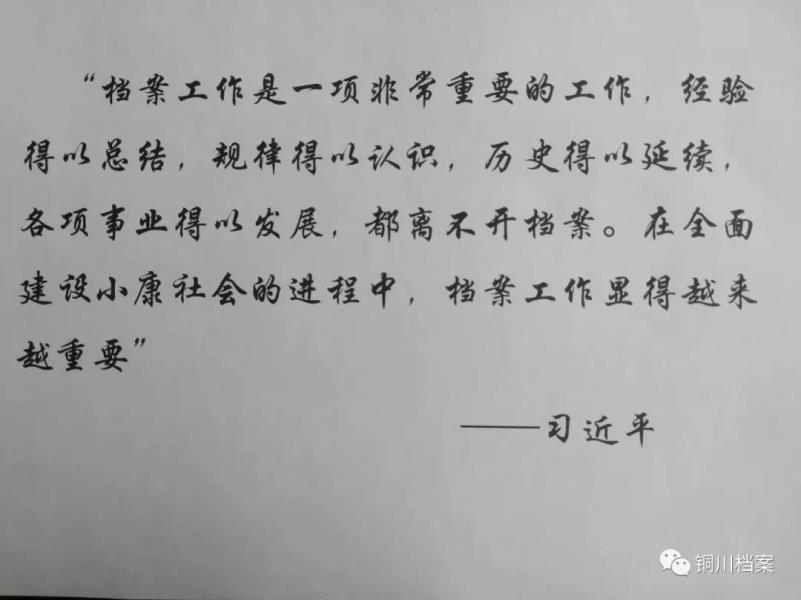 “档案工作是一项非常重要的工作，经验
得以总结，规律得以认识，历史得以延续，
各项事业得以发展，都离不开档案。在全面
建设小康社会的进程中，档案工作显得越来
越重要”
——习近平
铜川档案